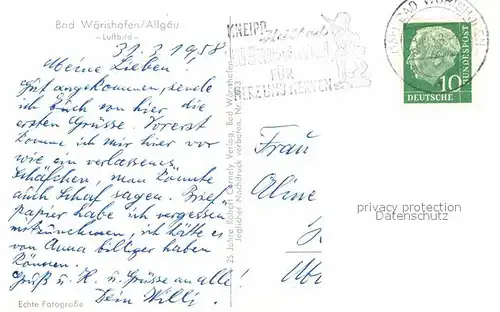 Bad Wörishofen/Allgäu
—Luftbild—
31.3.1958.
Meine Lieben!
Gut angekommen, sende
ich Euch von hier die
ersten Grüsse. Vorerst
komme ich mir hier vor
wie ein verlassenes
Schäfchen, man könnte
auch Schaf sagen. Brief-
papier habe ich vergessen
mitzunehmen, ich hätte es
von Anna billiger haben
können.
Gruß u. K. u. Grüsse an alle!
Dein Willi.
Echte Fotografie
25 Jahre Robert Cornely Verlag, Bad Wörishofen
Jeglicher Nachdruck verboten. Nr.
KNEIPP
FÜR
HERZ UND NERVEN
BAD WÖRISHOFEN
10
DEUTSCHE
BUNDESPOST
Frau
Aline
privacy protection
Datenschutz